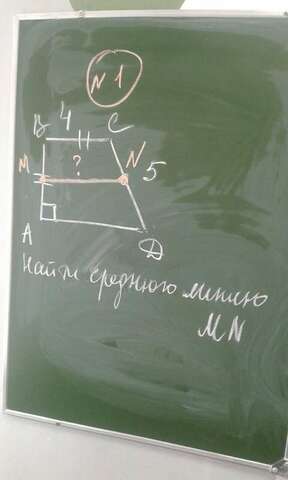 N 1
B 4 C
M ? N 5
A
D
Найти среднюю линию
MN